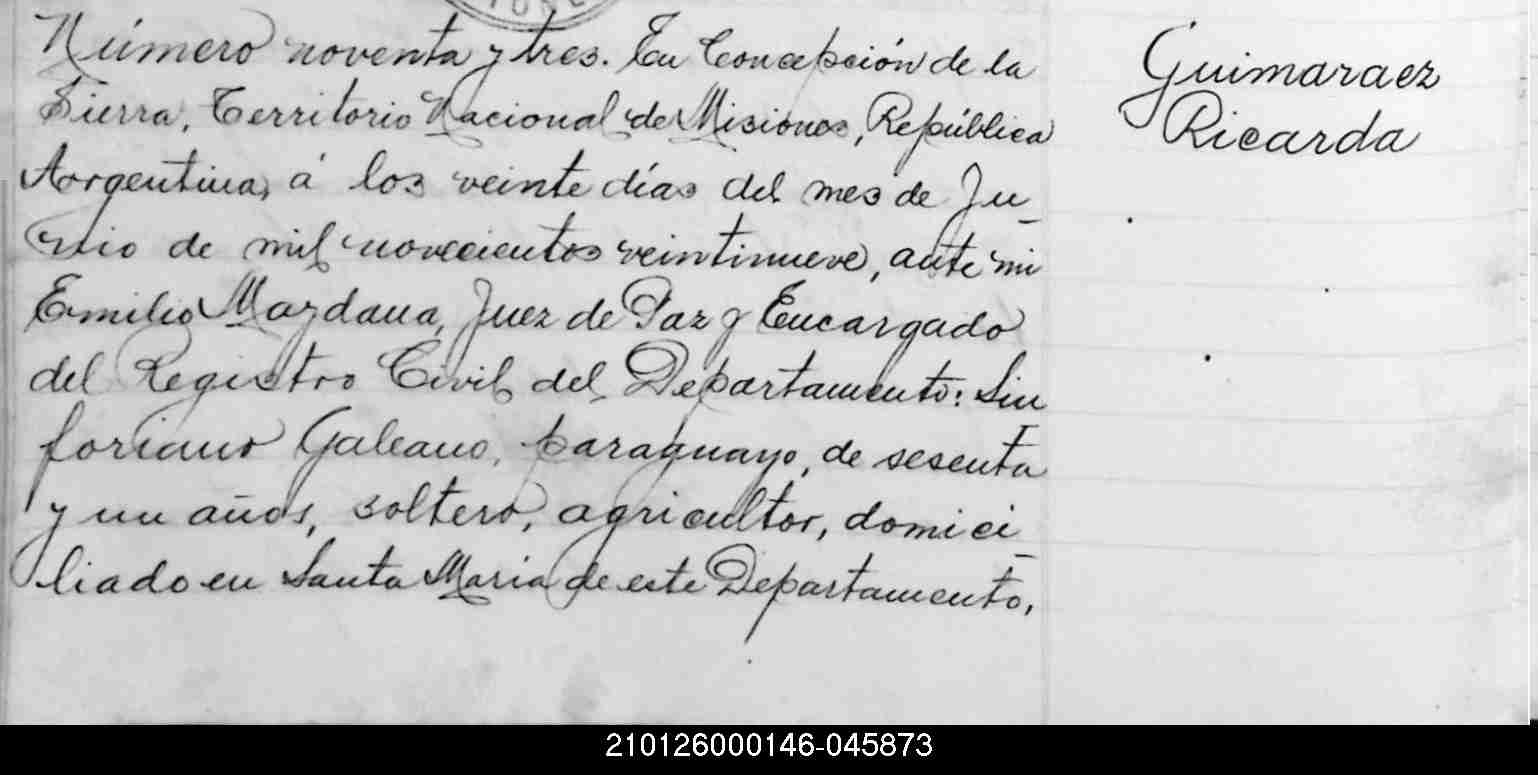 Número noventa y tres. En Concepción de la
Sierra, Territorio Nacional de Misiones, República
Argentina, á los veinte días del mes de Ju_
nio de mil novecientos veintinueve, ante mi
Emilio Maydana, Juez de Paz y Encargado
del Registro Civil del Departamento: Sin
foriano Galeano, paraguayo, de sesenta
y un años, soltero, agricultor, domici_
liado en Santa Maria de este Departamento,
Guimaraez
Ricarda
210126000146-045873